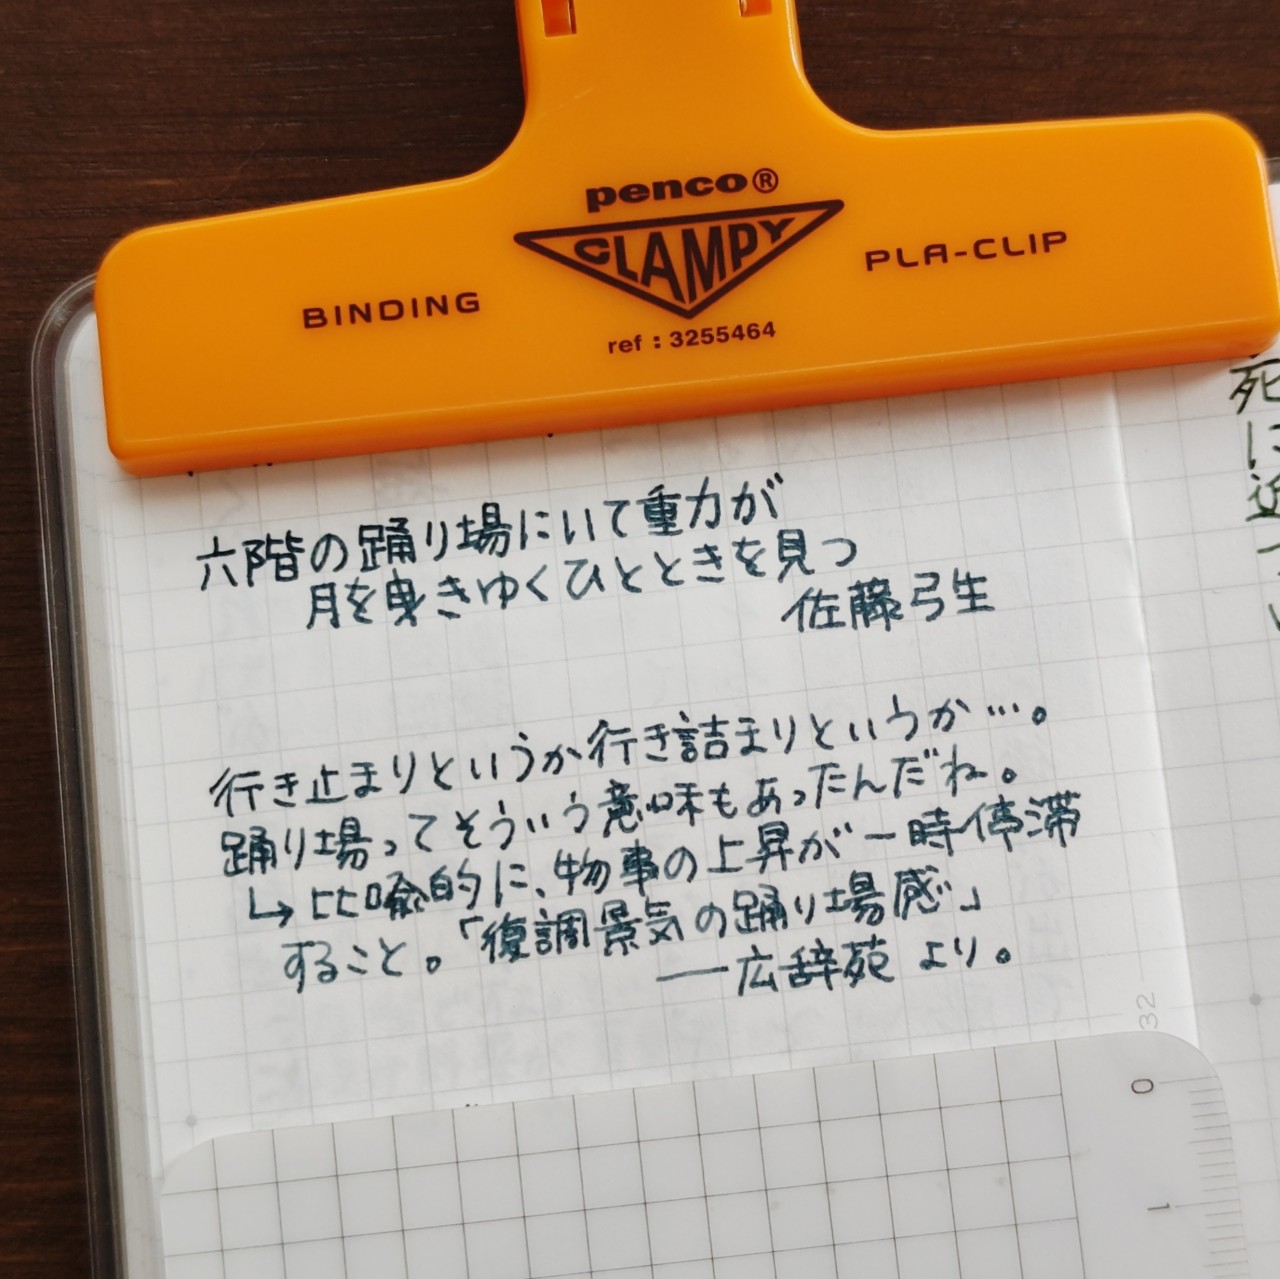 penco®
CLAMPY
BINDING
PLA-CLIP
ref : 3255464
六階の踊り場にいて重力が
月を曳きゆくひとときを見つ
佐藤弓生
行き止まりというか行き詰まりというか…。
踊り場ってそういう意味もあったんだね。
↳比喩的に、物事の上昇が一時停滞
すること。「復調景気の踊り場感」
——広辞苑 より。
32
0
1
死
に
近